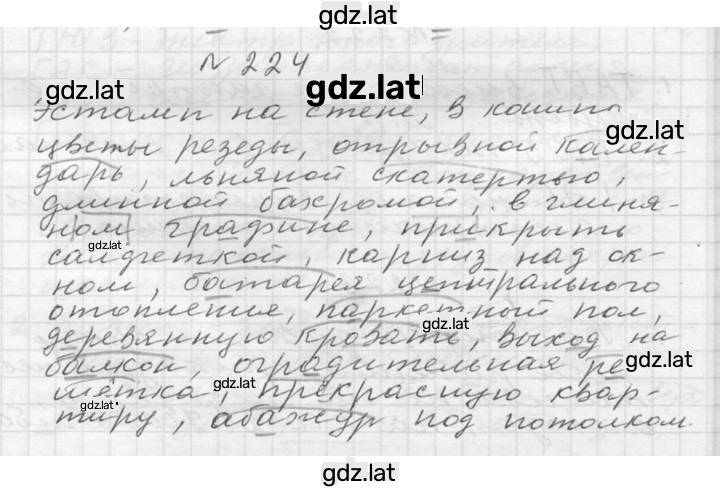 gdz.lat
№ 224
gdz.lat gdz.lat
Эстамп на стене, в кашпо
gdz.lat
цветы резеды, отрывной кален-
дарь, льняной скатертью,
длинной бахромой, в глиня-
ном графине, прикрыть
gdz.lat
салфеткой, карниз над ок-
ном, батарея центрального
отопления, паркетный пол,
gdz.lat
деревянную кровать, выход на
балкон, оградительная ре
gdz.lat
шётка, прекрасную квар-
gdz.lat gdz.lat
тиру, абажур под потолком.
gdz.lat